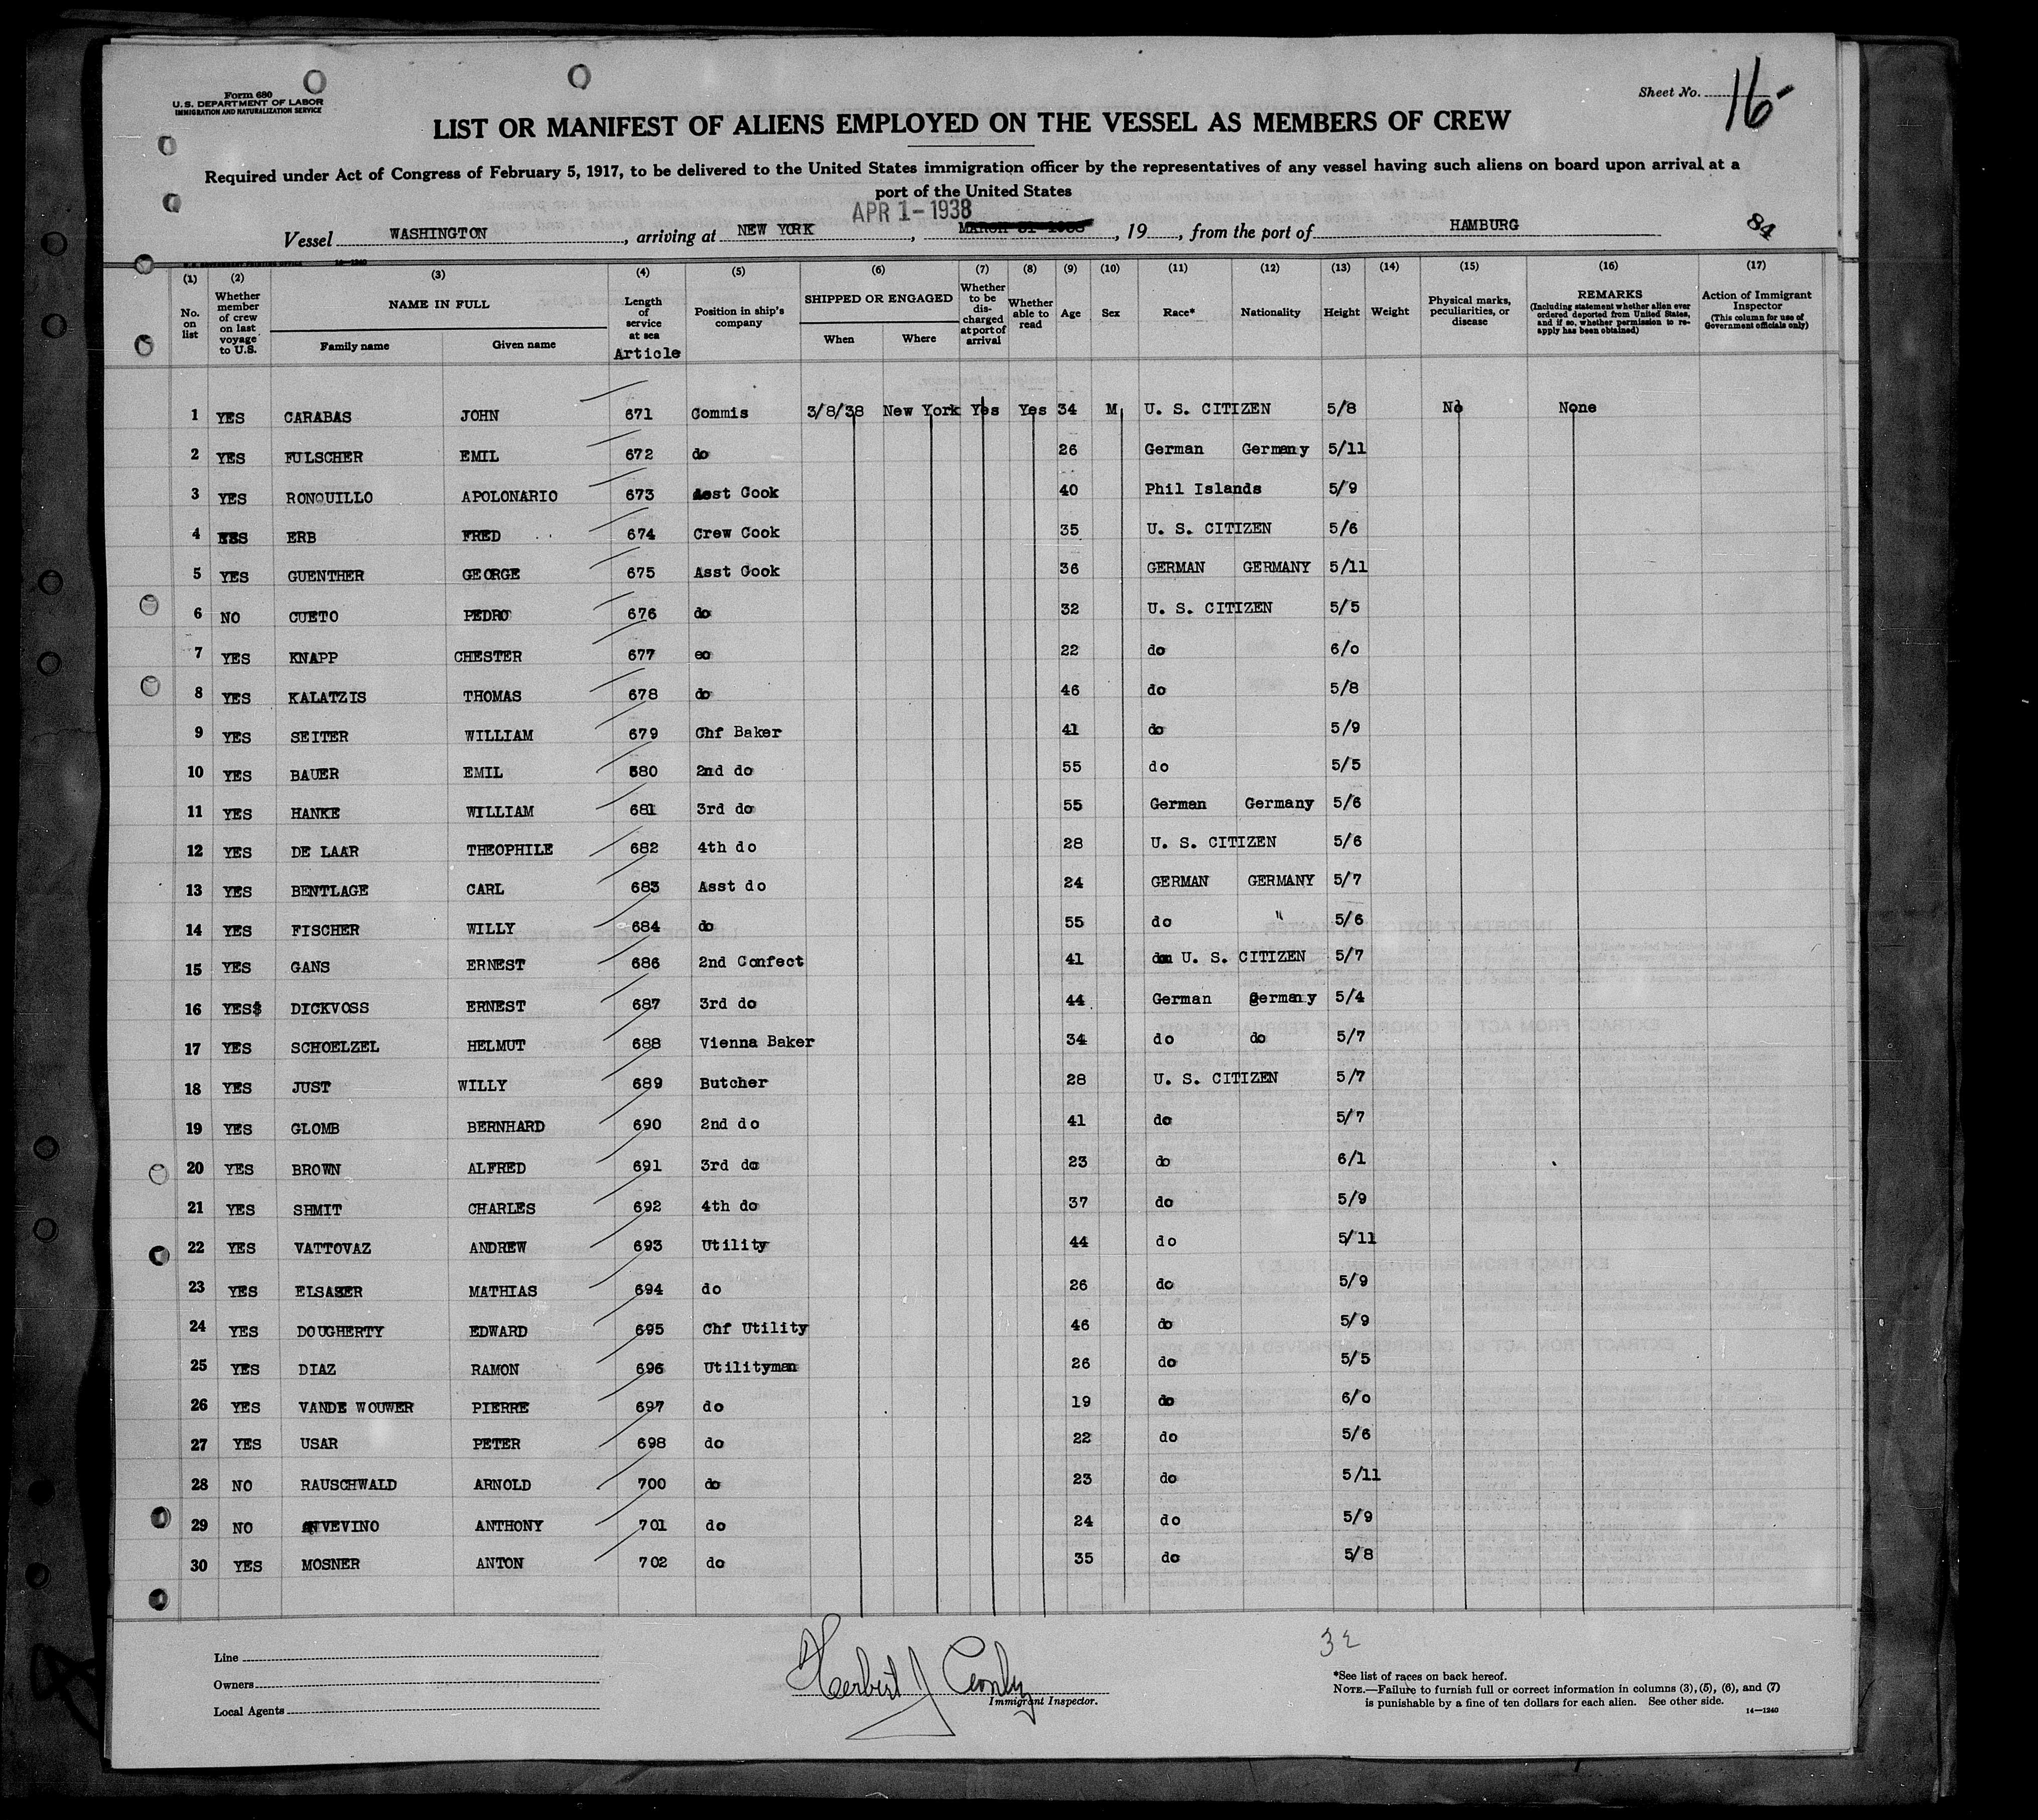 Form 680
U. S. DEPARTMENT OF LABOR
IMMIGRATION AND NATURALIZATION SERVICE
Sheet No. 16
LIST OR MANIFEST OF ALIENS EMPLOYED ON THE VESSEL AS MEMBERS OF CREW
Required under Act of Congress of February 5, 1917, to be delivered to the United States immigration officer by the representatives of any vessel having such aliens on board upon arrival at a
port of the United States
APR 1-1938
Vessel WASHINGTON, arriving at NEW YORK, MARCH 31 1938, 19, from the port of HAMBURG
84
(1) (2) (3) (4) (5) (6) (7) (8) (9) (10) (11) (12) (13) (14) (15) (16) (17)
No. on list
Whether member of crew on last voyage to U.S.
NAME IN FULL
Family name Given name
Length of service at sea
Article
Position in ship's company
SHIPPED OR ENGAGED
When Where
Whether to be discharged at port of arrival
Whether able to read
Age Sex Race* Nationality Height Weight
Physical marks, peculiarities, or disease
REMARKS
(Including statement whether alien ever ordered deported from United States, and if so, whether permission to reapply has been obtained)
Action of Immigrant Inspector
(This column for use of Government officials only)
1 YES CARABAS JOHN 671 Commis 3/8/38 New York Yes Yes 34 M U. S. CITIZEN 5/8 No None
2 YES FULSCHER EMIL 672 do 26 German Germany 5/11
3 YES RONQUILLO APOLONARIO 673 Asst Cook 40 Phil Islands 5/9
4 YES ERB FRED 674 Crew Cook 35 U. S. CITIZEN 5/6
5 YES GUENTHER GEORGE 675 Asst Cook 36 GERMAN GERMANY 5/11
6 NO CUETO PEDRO 676 do 32 U. S. CITIZEN 5/5
7 YES KNAPP CHESTER 677 eo 22 do 6/0
8 YES KALATZIS THOMAS 678 do 46 do 5/8
9 YES SEITER WILLIAM 679 Chf Baker 41 do 5/9
10 YES BAUER EMIL 680 2nd do 55 do 5/5
11 YES HANKE WILLIAM 681 3rd do 55 German Germany 5/6
12 YES DE LAAR THEOPHILE 682 4th do 28 U. S. CITIZEN 5/6
13 YES BENTLAGE CARL 683 Asst do 24 GERMAN GERMANY 5/7
14 YES FISCHER WILLY 684 do 55 do " 5/6
15 YES GANS ERNEST 686 2nd Confect 41 U. S. CITIZEN 5/7
16 YES$ DICKVOSS ERNEST 687 3rd do 44 German Germany 5/4
17 YES SCHOELZEL HELMUT 688 Vienna Baker 34 do do 5/7
18 YES JUST WILLY 689 Butcher 28 U. S. CITIZEN 5/7
19 YES GLOMB BERNHARD 690 2nd do 41 do 5/7
20 YES BROWN ALFRED 691 3rd do 23 do 6/1
21 YES SHMIT CHARLES 692 4th do 37 do 5/9
22 YES VATTOVAZ ANDREW 693 Utility 44 do 5/11
23 YES ELSASER MATHIAS 694 do 26 do 5/9
24 YES DOUGHERTY EDWARD 695 Chf Utility 46 do 5/9
25 YES DIAZ RAMON 696 Utilityman 26 do 5/5
26 YES VANDE WOUWER PIERRE 697 do 19 do 6/0
27 YES USAR PETER 698 do 22 do 5/6
28 NO RAUSCHWALD ARNOLD 700 do 23 do 5/11
29 NO ANTHONY 701 do 24 do 5/9
30 YES MOSNER ANTON 702 do 35 do 5/8
32
Line
Owners
Local Agents
Herbert J
Immigrant Inspector.
*See list of races on back hereof.
NOTE.—Failure to furnish full or correct information in columns (3), (5), (6), and (7)
is punishable by a fine of ten dollars for each alien. See other side.
14—1240